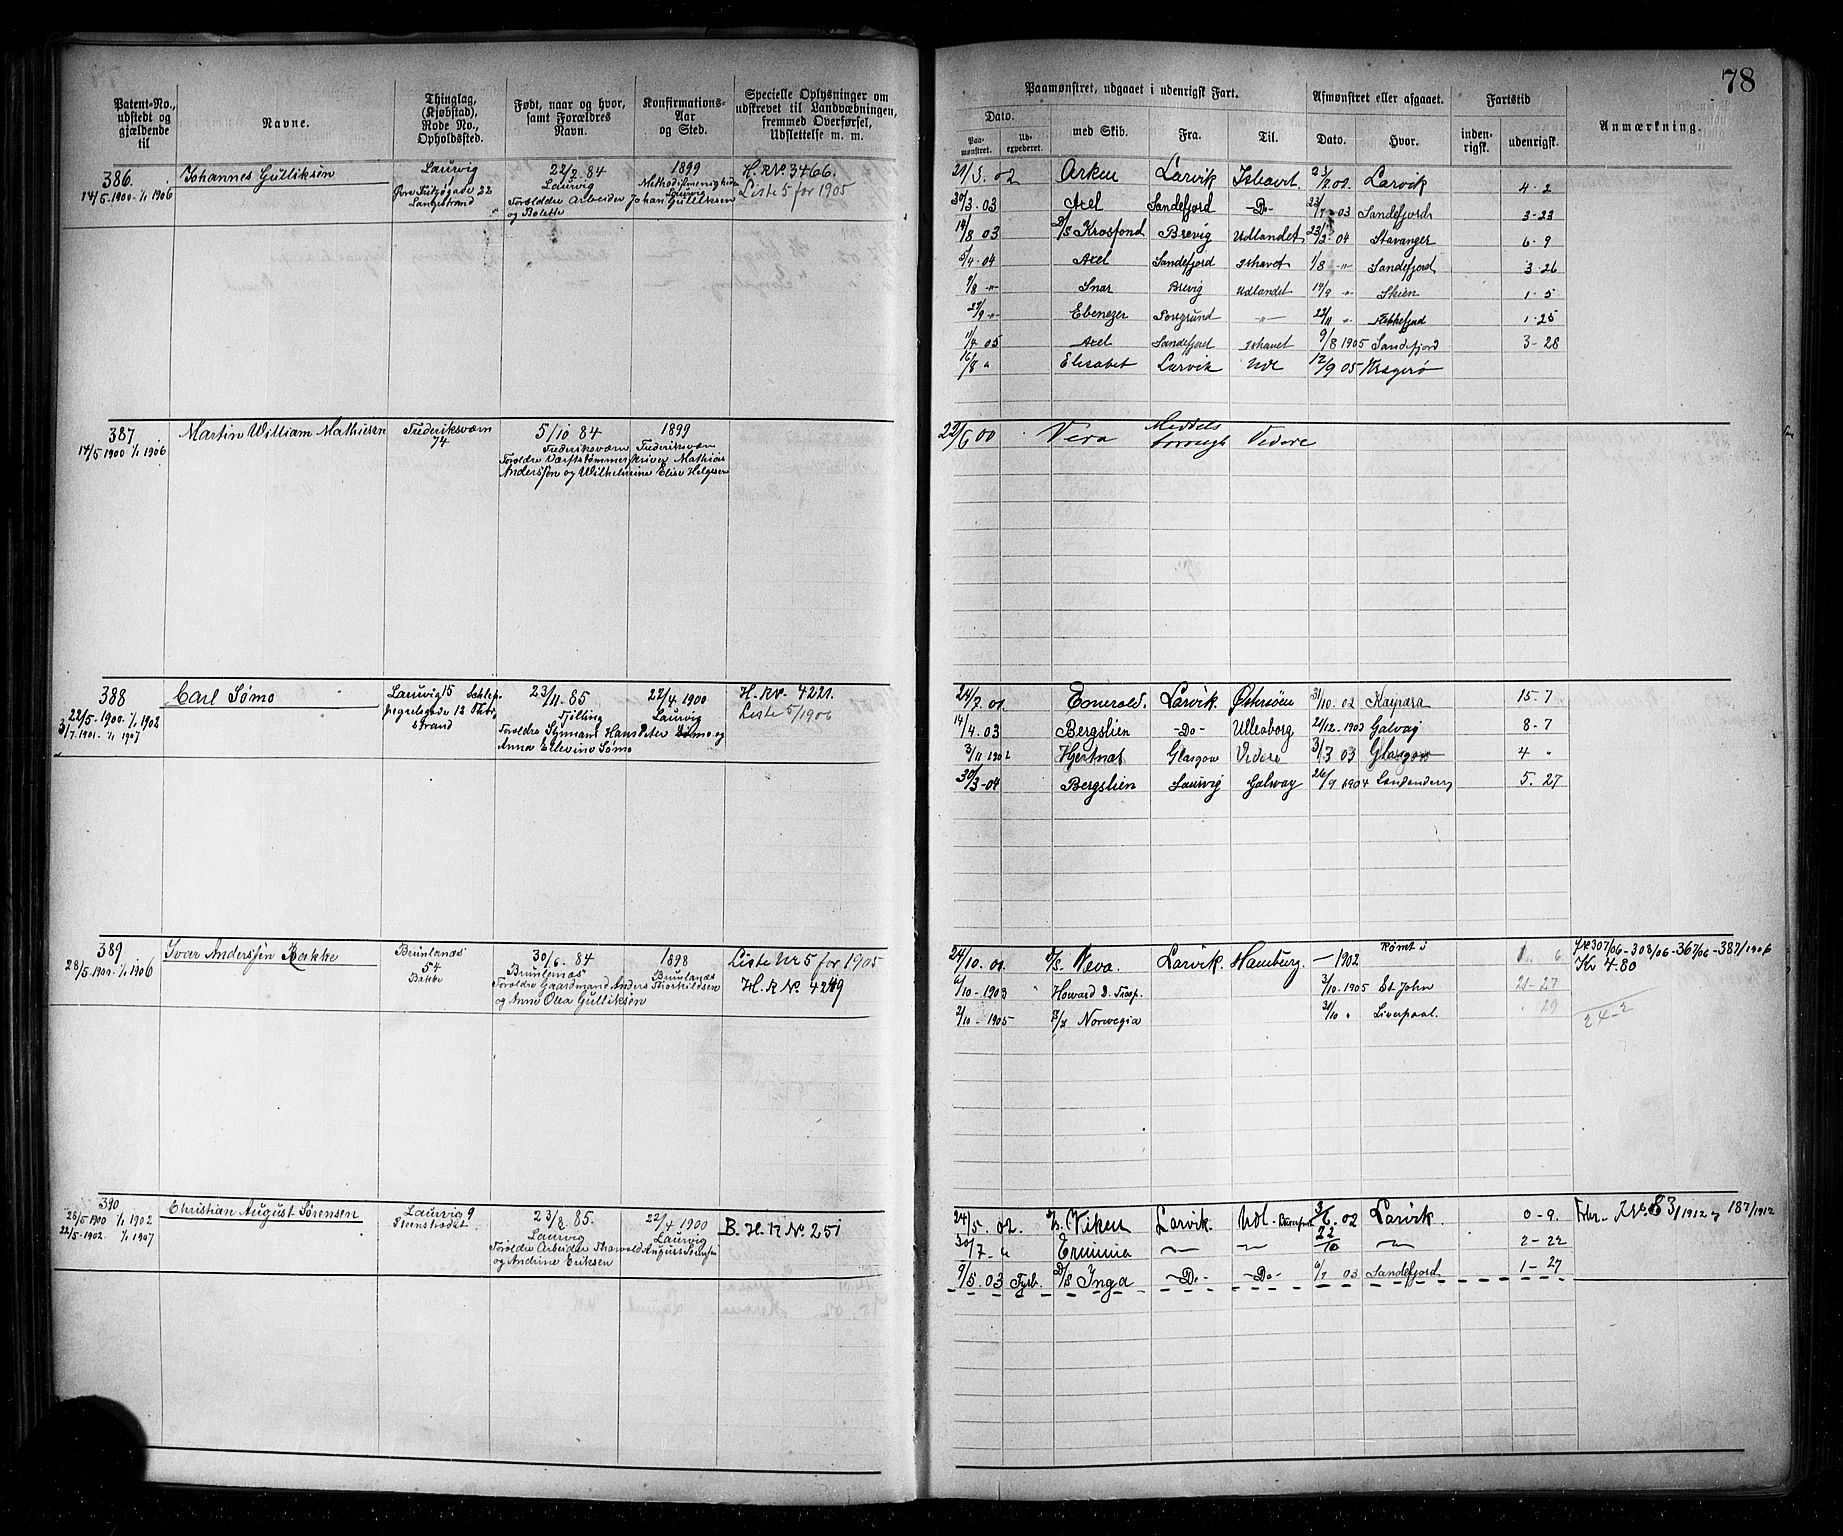 78
Patent-No., udstedt og gjældende til
Navne.
Thinglag, (Kjøbstad), Rode No., Opholdssted.
Født, naar og hvor, samt Forældres Navn.
Konfirmations-Aar og Sted.
Specielle Oplysninger om udskrevet til Landværnningen, fremmed Overførsel, Udslettelse m. m.
Paamønstret, udgaaet i udenrigsk Fart.
Dato.
Paa-mønstret.
Ud-expederet.
med Skib.
Fra.
Til.
Afmønstret eller afgaaet.
Dato.
Hvor.
Fartstid
inden-rigsk.
udenrigsk.
Anmærkning.
386.
14/5.1900-1/1 1906
Johannes Gulliksen
Laurvig
22
Langestrand
22/2. 84
Laurvig
Forældre Arbeider Johan Gulliksen
og Bolette
1899
Methodistmenigheden
Laurvig
H. R. Nº. 3466.
Liste 5 for 1905
21/3. 02 Arken Larvik Ishavet 02. Larvik 4-2
30/3. 03 Axel Sandefjord -Do- 03 Sandefjord 3-23
14/8 03 D/S Krosfond Brevig Udlandet 04 Stavanger 6-9
5/4-04 Axel Sandefjord Ishavet 1/8 -"- Sandefjord 3-26
9/8 -"- Snar Brevig Udlandet 14/9 -"- Skien 1-5
22/9 -"- Ebenezer Porsgrund -"- 22/11 " 1-25
05 Axel Sandefjord Ishavet 9/8 1905 Sandefjord 3-28
16/8 " Elisabet Larvik Udl 12/9 05 Kragerø
387
14/5 1900 1/1 1906
Martin William Mathiesen
Frederiksværn
74
5/10 84
Frederiksværn
Forældre Værftstømmerskriver Mathias
Anderssen og Wilhelmine Elise Helgesen
1899
Frederiksværn
22/6 00 Vera Middelsborough Videre
388
22/5-1900-1/1 1902
3/7.1901.-1/1 1907
Carl Sømo
Laurvig 15
12
strand
23/11. 85
Tjølling
Forældre Sømand Hans Peter Sømo og
Anna Edevine Sømo
22/4. 1900
Laurvig
H. R Nº. 4221.
Liste 5/1906
24/7. 01 Emerald. Larvik. Østersøen 31/10. 02 Kaipara 15-7
14/4. 03 Bergslien -Do- Uleaborg 21/12. 1903 Galvay 8-7
3/11 1902 Hjertnæs Glasgow Videre 3/3 03 Glasgow 4 "
30/3-04 Bergslien Laurvig Galway 26/9 1904 5. 27
389
28/5.1900.-1/1 1906
Ivar Anderssen Bakke
Brunlanæs
54
Bakke
30/6. 84
Brunlanæs
Forældre Gaardmand Anders Thorkildsen
og Anne Olea Gulliksen
1898
Brunlanæs
Liste Nr 5 for 1905
H. R Nº. 4249
24/10. 01 S/S. Neva. Larvik. Hamburg. -1902 Rømt i 6
307/06-308/06-367/06-387/1906
Kr 4.80
6/10-1903 Howard D. Troop. 3/10. 1905 St. John 21-27
2/10-1905 Norwegia 31/10 " Liverpool. 29
24-2
390
28/5 1900 1/1 1902
22/5-1902. 1/1 1907
Christian August Sørensen
Laurvig 9
Steinstrødet
23/8. 85.
Laurvig
Forældre Arbeider Thorvald August Sørensen
og Andrine Eriksen
22/4 1900
Laurvig
B. H. R Nº. 251
24/5. 02. Viken Larvik. Udl. 02 Larvik. 0-9.
83/1912 187/1912
30/7- " Ermina 22/10 2-22
9/5. 03 Fyrb. D/S Inga -Do- -Do- 6/7 03 Sandefjord 1-27